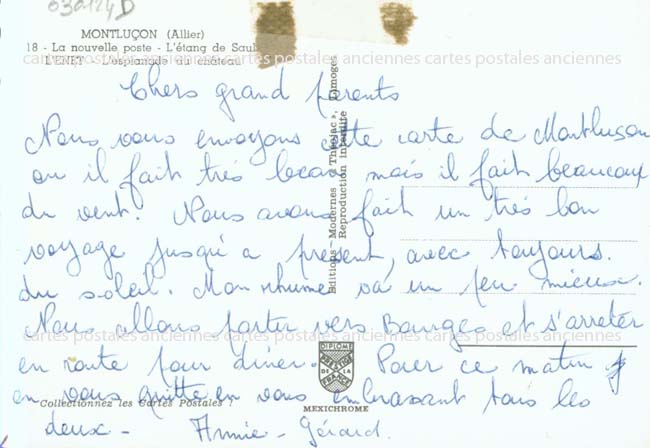 03a124D
MONTLUÇON (Allier)
18 - La nouvelle poste - L'étang de Saul
L'ENET - L'esplanade du château
cartes postales anciennes cartes postales anciennes cartes postales anciennes
Chers grand parents
Nous vous envoyons cette carte de Montluson
ou il fait très beau mais il fait beaucoup
du vent. Nous avons fait un très bon
voyage jusqu'a present, avec toujours.
du soleil. Mon rhume va un peu mieux.
Nous allons partir vers Bourges et s'arreter
cartes postales anciennes cartes postales anciennes cartes postales anciennes
en route pour diner. Pour ce matin
on vous quitte en vous embrassant tous les
deux - Annie - Gérard.
Editions Modernes « Théojac », Limoges
Reproduction interdite
DIPLOME
DE LA
FRANCE
MEXICHROME
Collectionnez les Cartes Postales !